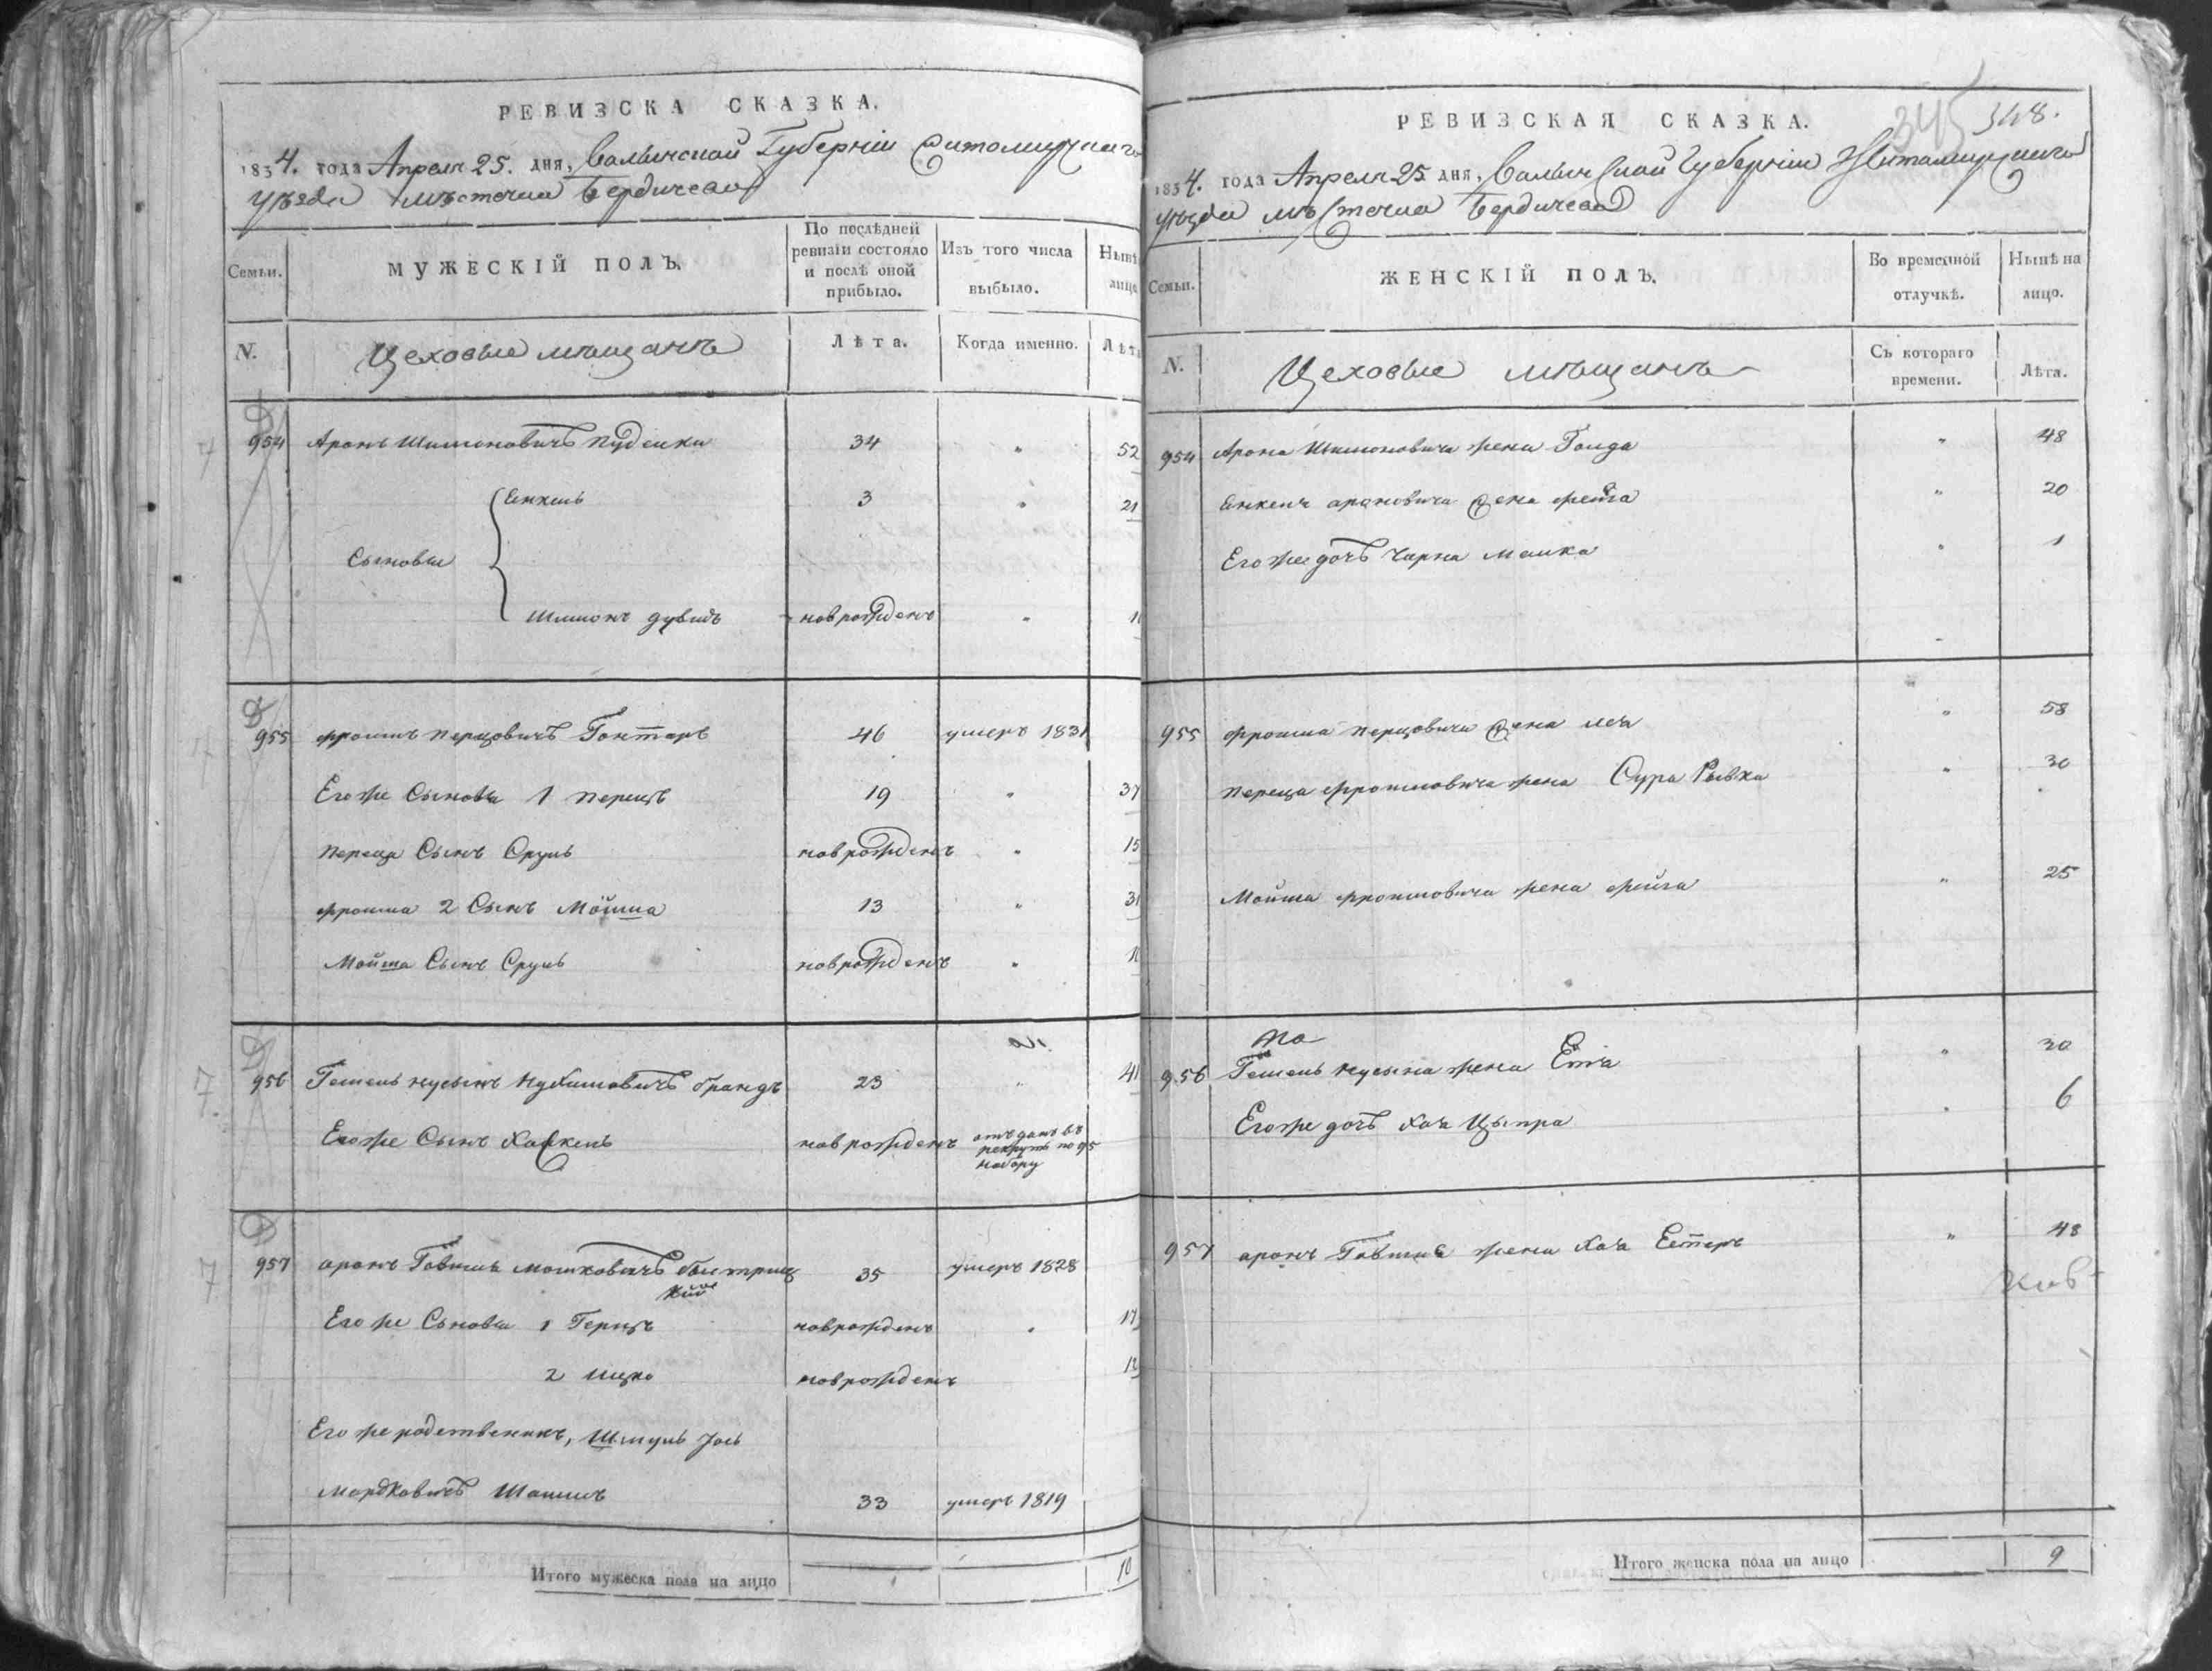 РЕВИЗСКА СКАЗКА.
1834. года Апреля 25. дня, Волынской Губернии Житомирскаго
уѣзда мѣстечка Бердичева
Семьи.
МУЖЕСКІЙ ПОЛЪ.
По послѣдней
ревизіи состояло
и послѣ оной
прибыло.
Изъ того числа
выбыло.
Нынѣ
лицо
N.
Цеховые мѣщанъ
Лѣта.
Когда именно.
Лѣта
954 Аронъ Шимоновичъ 34 " 52
Енкель 3 " 21
Сыновья
Шимонъ дувидъ новрожденъ "
955 фроимъ перцовичъ Гонтарь 46 умеръ 1831
Его же Сыновья 1 перецъ 19 " 37
переца Сынъ Сруль новрожденъ " 15
фроима 2 Сынъ Мойша 13 " 31
Мойша Сынъ Сруль новрожденъ "
956 Гешель нусынъ брандъ 23 " 41
Его же Сынъ новрожденъ отъданъ въ
рекруты по 95
набору
957 аронъ мошковичъ быстриц
кий
35 умеръ 1828
Его же Сыновья 1 Герцъ новрожденъ " 17
2 ицко новрожденъ 12
Его же родственникъ, Шмуль Іось
мордковичъ 33 умеръ 1819
Итого мужеска пола на лицо 10
РЕВИЗСКАЯ СКАЗКА.
345 348.
1834. года Апреля 25 дня, Волынской Губернии Житомирскаго
уѣзда мѣстечка Бердичева
Семьи.
ЖЕНСКІЙ ПОЛЪ.
Во временной
отлучкѣ.
Нынѣ на
лицо.
N.
Цеховые мѣщанъ
Съ котораго
времени.
Лѣта.
954 Арона Шимоновича жена Голда " 48
Енкеля ароновича жена фейга " 20
Его же дочь Чарна малка " 1
955 фроима перцовича жена лея " 58
переца фроимовича жена Сура Рывка " 30
Мойша фроимовича жена фейга " 25
956 Гешель нусына жена Етя " 30
Его же дочь хая Цыпра " 6
957 аронъ жена хая Естеръ " 48
Итого женска пола на лицо 9